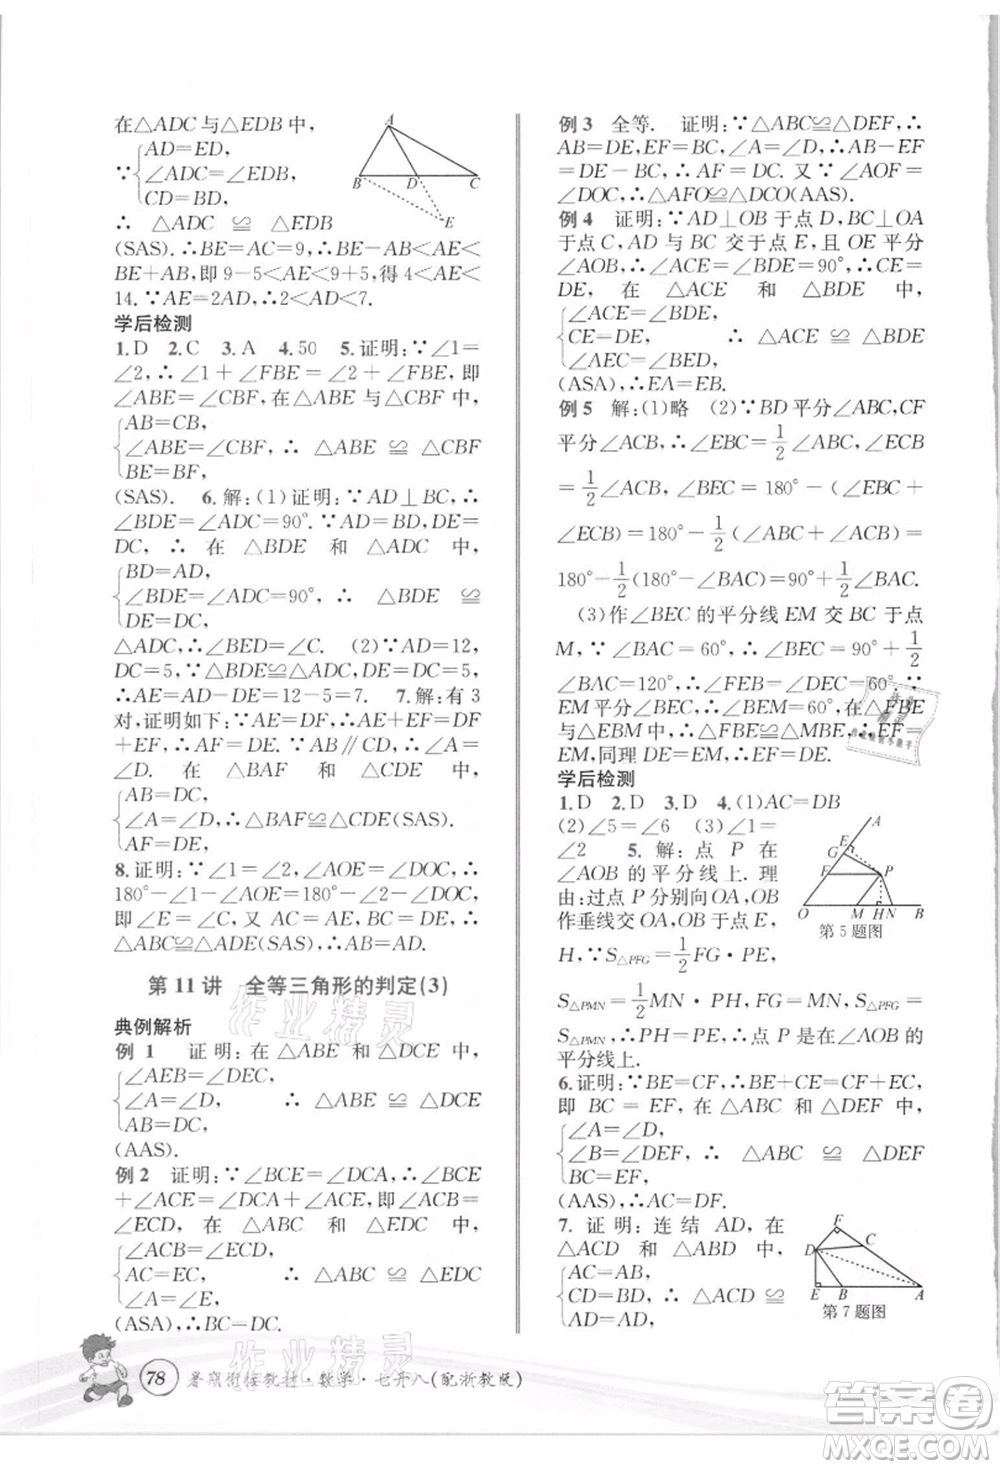 在△ADC与△EDB中,
AD=ED,
∵ ∠ADC=∠EDB,
CD=BD,
∴ △ADC ≌ △EDB
(SAS). ∴BE=AC=9,∵BE-AB<AE<
BE+AB,即9-5<AE<9+5,得4<AE<
14.∵AE=2AD,∴2<AD<7.
A
B D C
E
学后检测
1.D 2.C 3.A 4.50 5.证明:∵∠1=
∠2,∴∠1+∠FBE=∠2+∠FBE,即
∠ABE=∠CBF,在△ABE与△CBF中,
AB=CB,
∠ABE=∠CBF, ∴ △ABE ≌ △CBF
BE=BF,
(SAS). 6.解:(1)证明:∵AD⊥BC,∴
∠BDE=∠ADC=90°.∵AD=BD,DE=
DC, ∴ 在 △BDE 和 △ADC 中,
BD=AD,
∠BDE=∠ADC=90°, ∴ △BDE ≌
DE=DC,
△ADC,∴∠BED=∠C. (2)∵AD=12,
DC=5,∵△BDE≌△ADC,∴DE=DC=5,
∴AE=AD-DE=12-5=7. 7.解:有3
对,证明如下:∵DE=BF,∴DE+EF=BF
+EF,即 DF=BE.∵AB∥CD,∴∠B=
∠D. 在 △BAF 和 △DCE 中,
AB=DC,
∠A=∠C, ∴△BAF≌△DCE(SAS).
AF=DE,
8.证明:∵∠1=∠2,∠AOE=∠DOC,∴
180°-∠1-∠AOE=180°-∠2-∠DOC,
即∠E=∠C,又 AC=AE,BC=DE,
∴△ABC≌△ADE(SAS),∴AB=AD.
第 11 讲 全等三角形的判定(3)
典例解析
例 1 证明:在 △ABE 和 △DCE 中,
∠AEB=∠DEC,
∠A=∠D, ∴ △ABE ≌ △DCE
AB=DC,
(AAS).
例 2 证明:∵∠BCE=∠DCA,∴∠BCE
+∠ACE=∠DCA+∠ACE,即∠ACB=
∠ECD, 在 △ABC 和 △EDC 中,
∠ACB=∠ECD,
AC=EC, ∴ △ABC ≌ △EDC
∠A=∠E,
(ASA),∴BC=DC.
例 3 全等. 证明:∵△ABC≌△DEF,∴
AB=DE,BC=EF,∴AB-BF=EF-BF,
∴AF=DC. 又∵∠AOF=
∠DOC,∴△AFO≌△DCO(AAS).
例 4 证明:∵AD⊥OB于点D,BC⊥OA
于点C,AD与BC交于点E,且OE平分
∠AOB,∴∠ACE=∠BDE=90°,CE=
DE, 在 △ACE 和 △BDE 中,
∠ACE=∠BDE,
CE=DE, ∴ △ACE ≌ △BDE
∠AEC=∠BED,
(ASA),∴EA=EB.
例 5 解:(1)略 (2)∵BD平分∠ABC,CF
平分∠ACB,∴∠EBC=1/2∠ABC,∠ECB
=1/2∠ACB,∴∠BEC=180°-(∠EBC+
∠ECB)=180°-1/2(∠ABC+∠ACB)=
180°-1/2(180°-∠BAC)=90°+1/2∠BAC.
(3)作∠BEC的平分线EM交BC于点
M,∵∠BAC=60°,∴∠BEC=90°+1/2
∠BAC=120°,∴∠FEB=∠DEC=60°.∵
EM平分∠BEC,∴∠BEM=60°,在△FBE
与△EBM中,∴△FBE≌△MBE,∴EF=
EM,同理DE=EM,∴EF=DE.
学后检测
1.D 2.D 3.D 4.(1)AC=DB
(2)∠5=∠6 (3)∠1=
∠2 5.解:点 P 在
∠AOB的平分线上. 理
由:过点P分别向OA,OB
作垂线交OA,OB于点E,
H,∵S△PFG=1/2FG·PE,
S△PMN=1/2MN·PH,FG=MN,S△PFG=
S△PMN,∴PH=PE,∴点P是在∠AOB的
平分线上.
A
E
G
F P
O M H N B
第5题图
6.证明:∵BE=CF,∴BE+EC=CF+EC,
即 BC=EF,在△ABC和△DEF中,
∠A=∠D,
∠B=∠DEF, ∴ △ABC ≌ △DEF
BC=EF,
(AAS),∴AC=DF.
7. 证明:连结 AD,在
△ACD 和 △ABD 中,
AC=AB,
CD=BD,∴
AD=AD,
F
C
D
E B A
第7题图
78 暑期衔接教材·数学·七升八(配浙教版)
作业精灵
作业精灵
答案圈
MXQE.COM